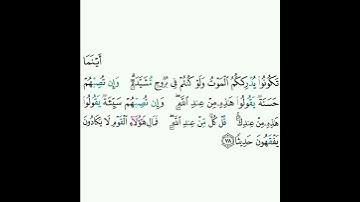 أَيْنَمَا
تَكُونُوا۟ يُدْرِككُّمُ ٱلْمَوْتُ وَلَوْ كُنتُمْ فِى بُرُوجٍ مُّشَيَّدَةٍ ۗ وَإِن تُصِبْهُمْ
حَسَنَةٌ يَقُولُوا۟ هَٰذِهِۦ مِنْ عِندِ ٱللَّهِ ۖ وَإِن تُصِبْهُمْ سَيِّئَةٌ يَقُولُوا۟
هَٰذِهِۦ مِنْ عِندِكَ ۚ قُلْ كُلٌّ مِّنْ عِندِ ٱللَّهِ ۖ فَمَالِ هَٰٓؤُلَآءِ ٱلْقَوْمِ لَا يَكَادُونَ
يَفْقَهُونَ حَدِيثًا ٧٨